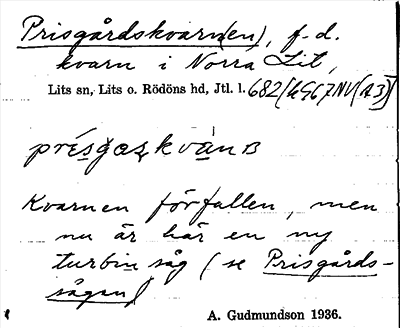 Prisgårdskvarn(en), f. d.
kvarn i Norra Lit,
Lits sn, Lits o. Rödöns hd, Jtl. l.
Kvarnen förfallen, men
nu är här en ny
turbinsåg (se Prisgårds-
sågen)
A. Gudmundson 1936.